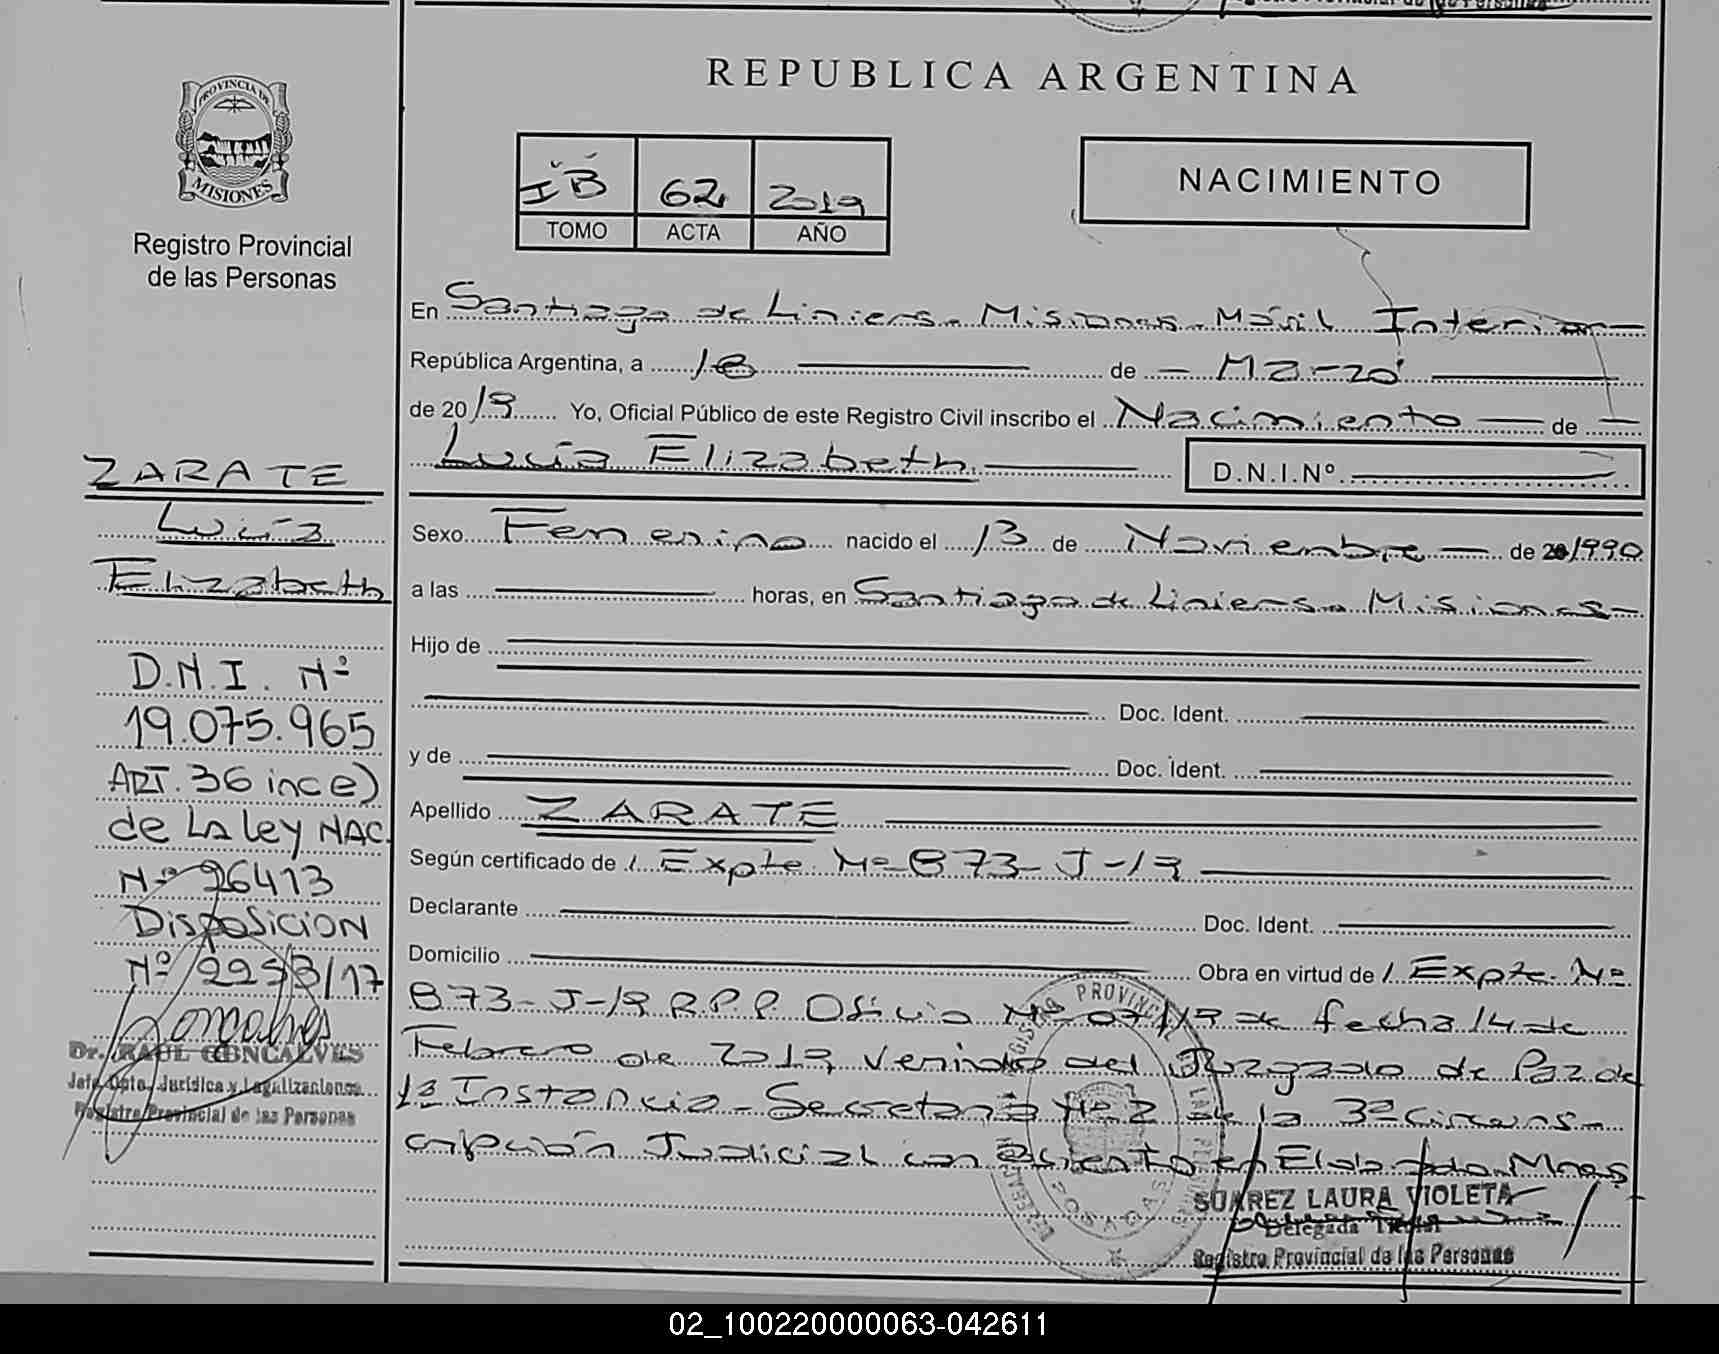 Registro Provincial de las Personas
REPUBLICA ARGENTINA
PROVINCIA DE
MISIONES
Registro Provincial
de las Personas
62 2019
TOMO ACTA AÑO
NACIMIENTO
En Santiago de Liniers - Misiones - Móvil Interior
República Argentina, a 18 de Marzo
de 2019 Yo, Oficial Público de este Registro Civil inscribo el Nacimiento de
Lucía Elizabeth D.N.I.Nº
Sexo Femenino nacido el 13 de Noviembre de 1990
a las horas, en Santiago de Liniers - Misiones
Hijo de
Doc. Ident.
y de Doc. Ident.
Apellido ZARATE
Según certificado de Expte Nº 873-J-19
Declarante Doc. Ident.
Domicilio Obra en virtud de Expte. Nº
873-J-19 R.P.P. Oficio Nº 07/19 de fecha 14 de
Febrero de 2019, venido del Juzgado de Paz de
1ª Instancia - Secretaría Nº 2 de la 3ª Circuns-
cripción Judicial con asiento en Eldorado Mnes
SUAREZ LAURA VIOLETA
Delegada Titular
Registro Provincial de las Personas
ZARATE
Lucía
Elizabeth
D.N.I. Nº
19.075.965
ART. 36 inc e)
de La Ley NAC.
Nº 26413
DISPOSICION
Nº 2253/17
Dr. RAUL GONCALVES
Jefe Dpto. Jurídica y Legalizaciones
Registro Provincial de las Personas
02_100220000063-042611